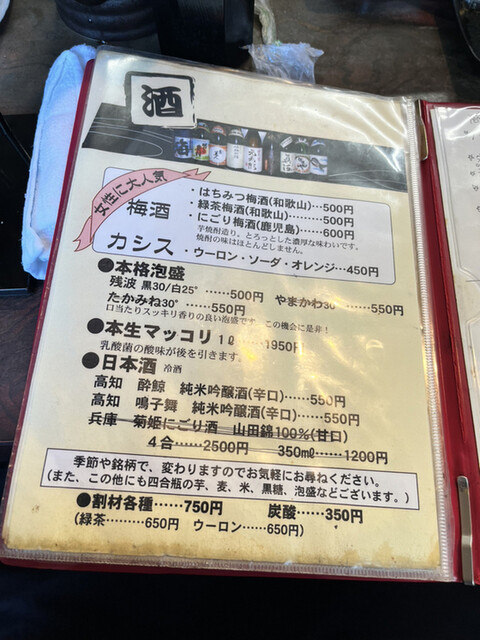 酒
女性に大人気
梅酒
・はちみつ梅酒(和歌山)…500円
・緑茶梅酒(和歌山)………500円
・にごり梅酒(鹿児島)……600円
芋焼酎造り。とろっとした濃厚な味わいです。
焼酎の味はほとんどしません。
カシス・ウーロン・ソーダ・オレンジ…450円
●本格泡盛
残波 黒30/白25° ……500円 やまかわ30° ……550円
たかみね30° ……550円
口当たりスッキリ香りの良い泡盛です。この機会に是非!
●本生マッコリ 1ℓ……1950円
乳酸菌の酸味が後を引きます。
●日本酒 冷酒
高知 酔鯨 純米吟醸酒(辛口)……550円
高知 鳴子舞 純米吟醸酒(辛口)……550円
兵庫 菊姫にごり酒 山田錦100%(甘口)
4合……2500円 350㎖…1200円
季節や銘柄で、変わりますのでお気軽にお尋ねください。
(また、この他にも四合瓶の芋、麦、米、黒糖、泡盛などございます。)
●割材各種……750円 炭酸……350円
(緑茶………650円 ウーロン……650円)